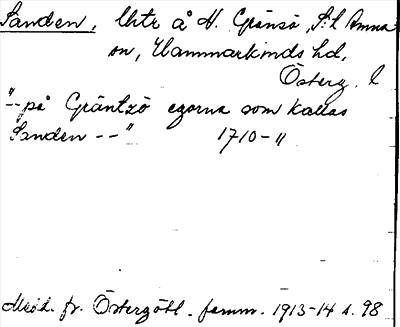 Sanden, Uhte å N. Gränsö, S:t Anna
sn, Hammarkinds hd,
Österg. l
"-- på Gräntzö egorna som kallas
Sanden --" 1710-11
Medd. fr. Östergötl. fornm. 1913-14 s. 98